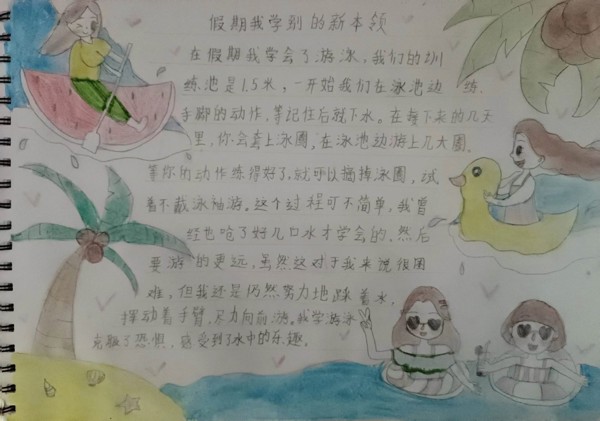 假期我学到的新本领
在假期我学会了游泳,我们的训
练池是1.5米,一开始我们在泳池边 练
手脚的动作,等记住后就下水。在接下来的几天
里,你会套上泳圈,在泳池边游上几大圈.
等你的动作练得好了,就可以摘掉泳圈,试
着不戴泳袖游。这个过程可不简单,我曾
经也呛了好几口水才学会的,然后
要游 的更远,虽然这对于我来说很困
难,但我还是仍然努力地踩着水,
挥动着手臂,尽力向前游。我学游泳
克服了恐惧,感受到了水中的乐趣。